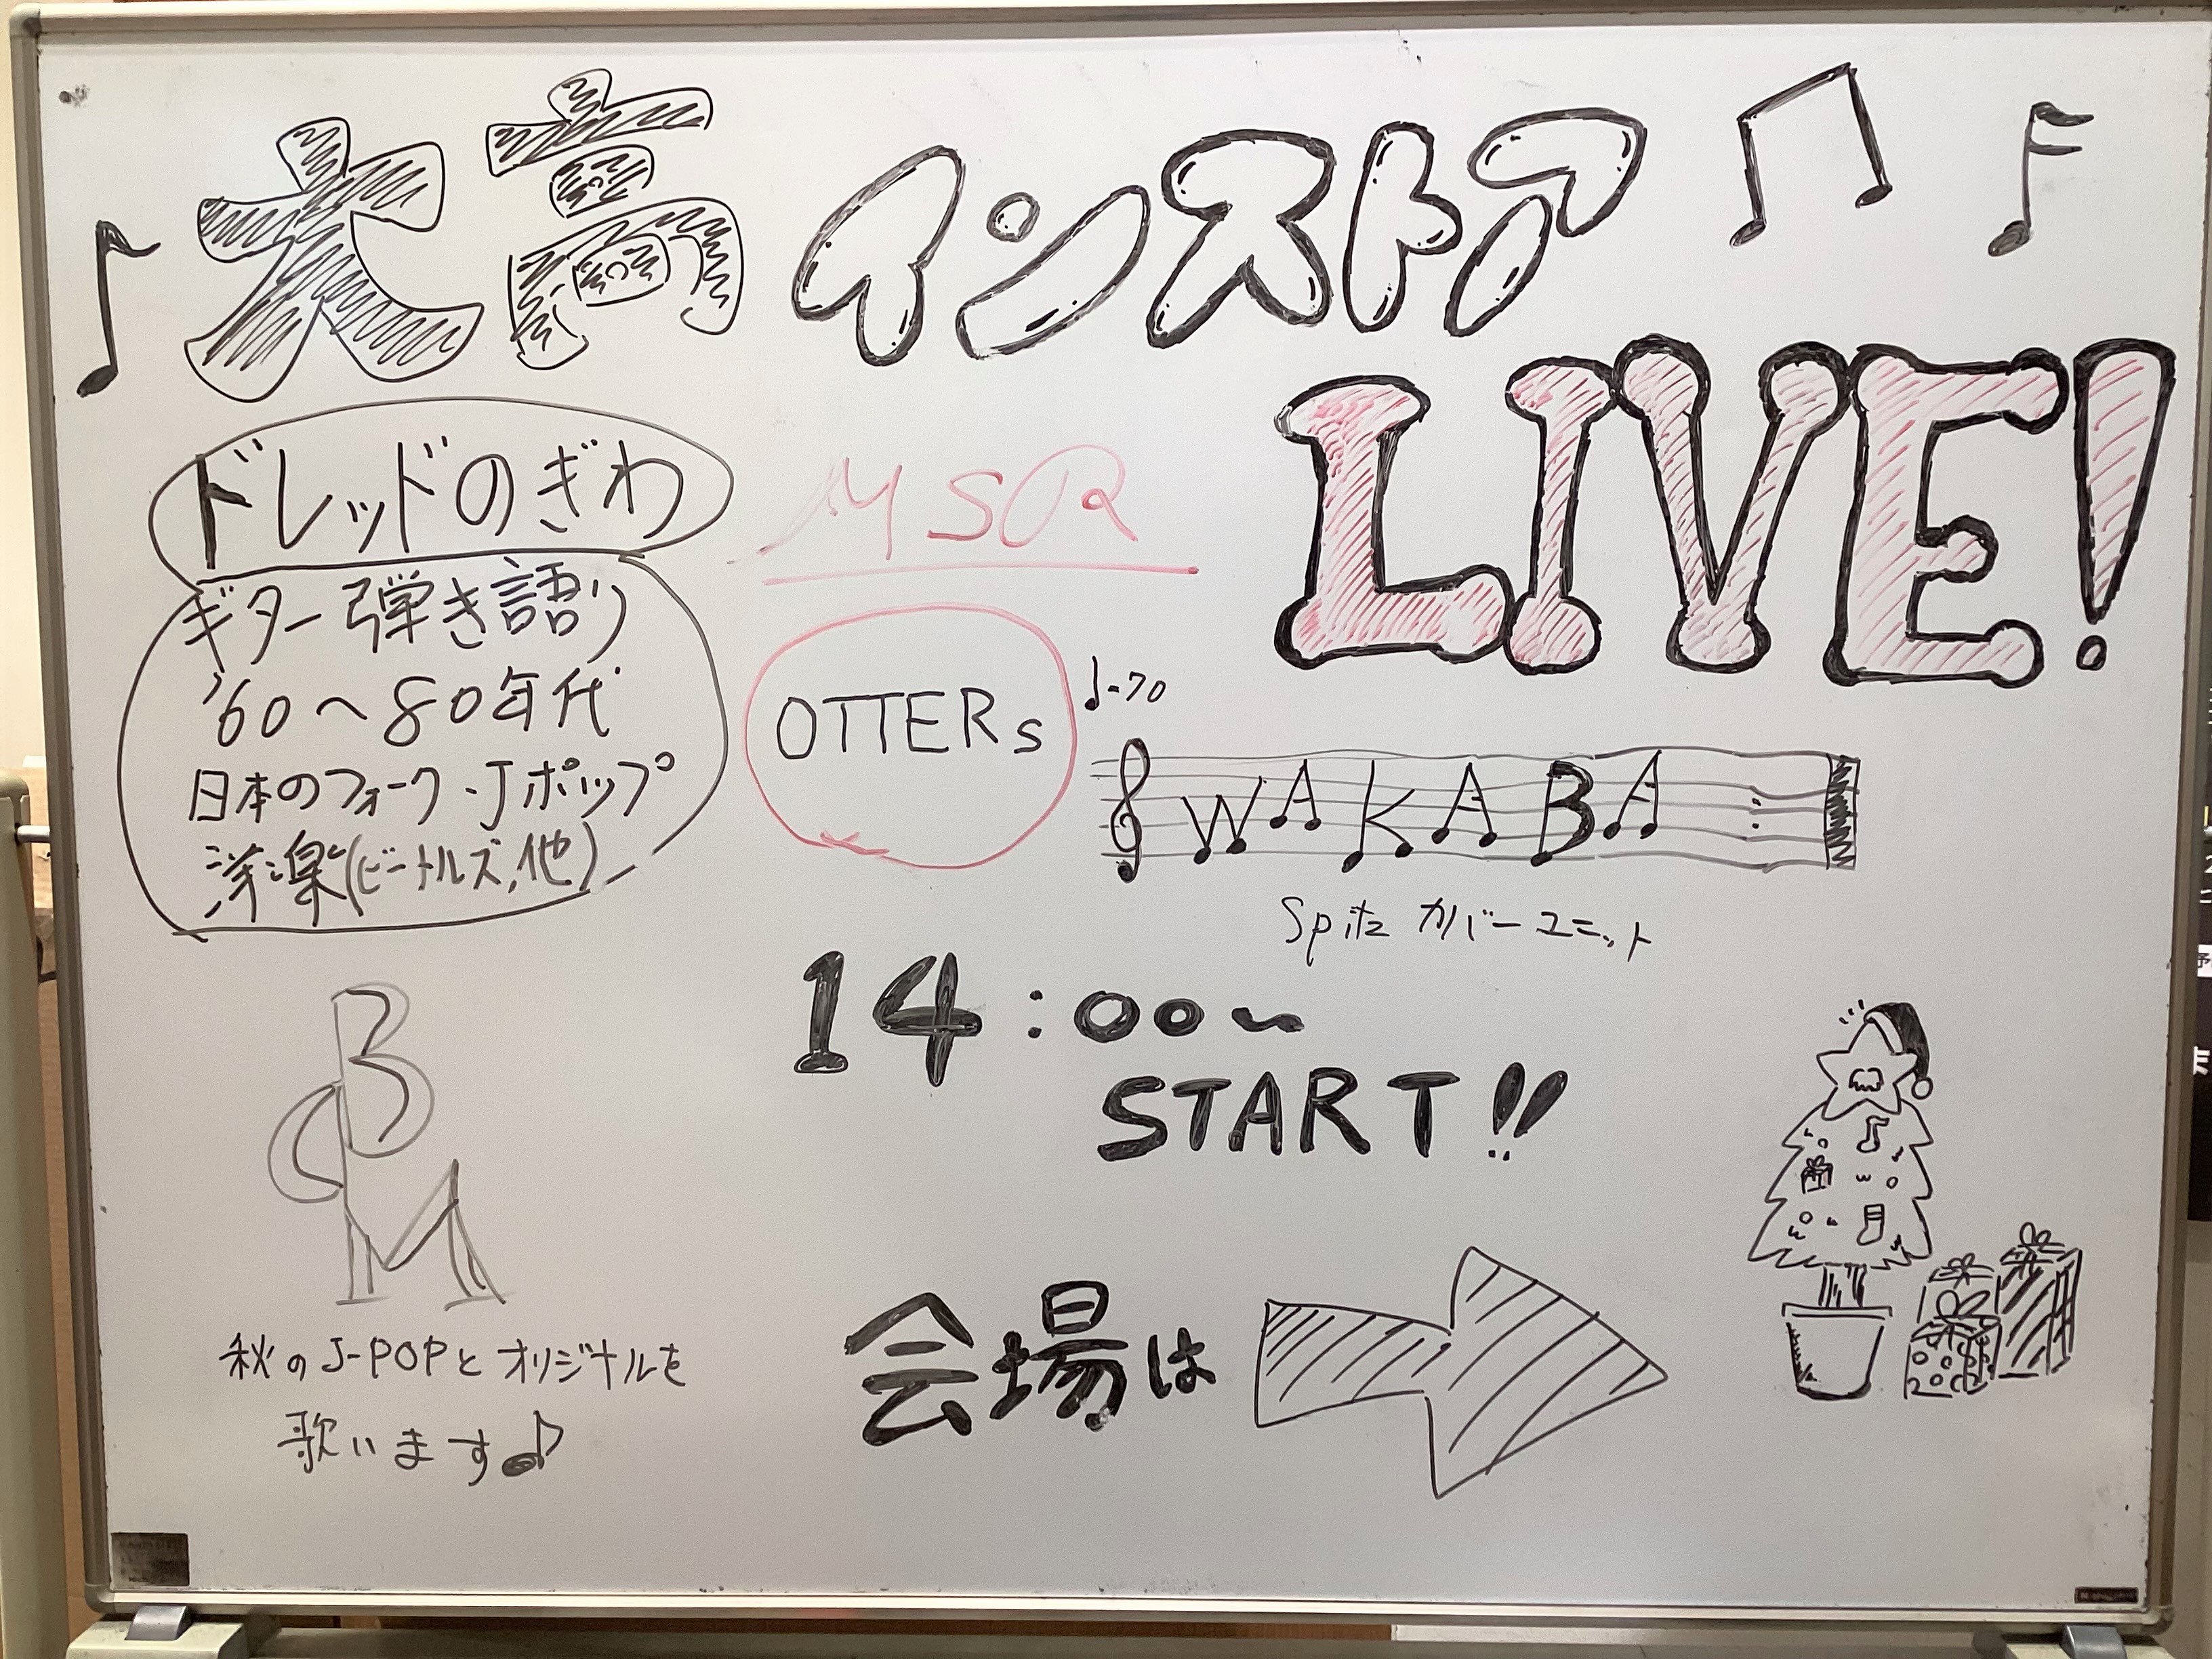 大高 インストア
LIVE!
ドレッドのぎわ
ギター弾き語り
'60～80年代
日本のフォーク・Jポップ
洋楽(ビートルズ,他)
MSR
OTTERs
♩=70
WAKABA
Spitz カバーユニット
14:00～
START!!
BM
秋のJ-POPとオリジナルを
歌います♪
会場は